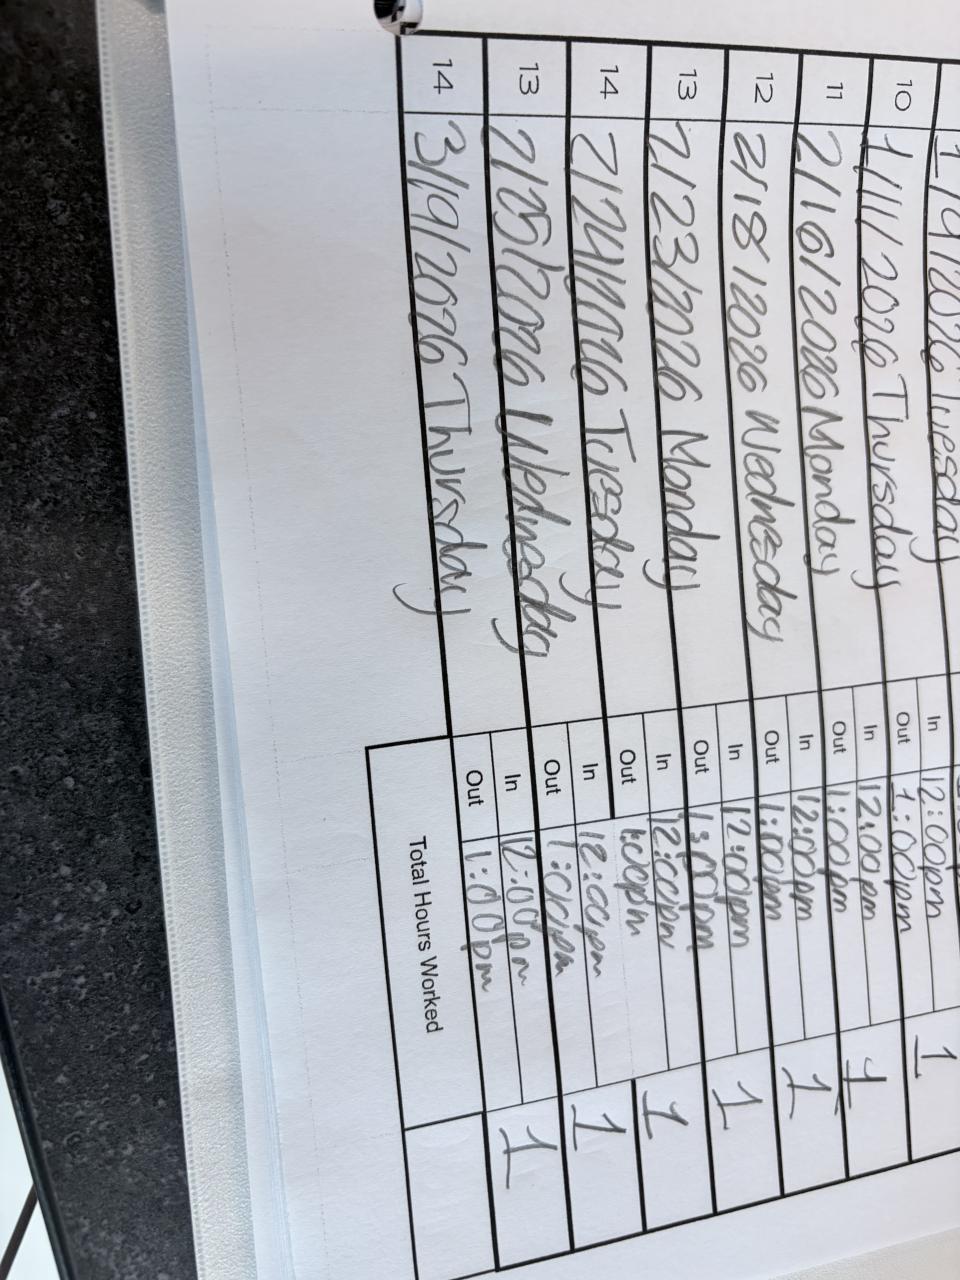 1/9/2026 Tuesday In 12:00pm
10 1/11/2026 Thursday Out 1:00pm 1
11 2/16/2026 Monday In 12:00pm
Out 1:00pm 1
12 2/18/2026 Wednesday In 12:00pm
Out 1:00pm 1
13 2/23/2026 Monday In 12:00pm
Out 1:00pm 1
14 2/24/2026 Tuesday In 12:00pm
Out 1:00pm 1
13 2/25/2026 Wednesday In 12:00pm
Out 1:00pm 1
14 3/19/2026 Thursday In 12:00pm
Out 1:00pm 1
Total Hours Worked